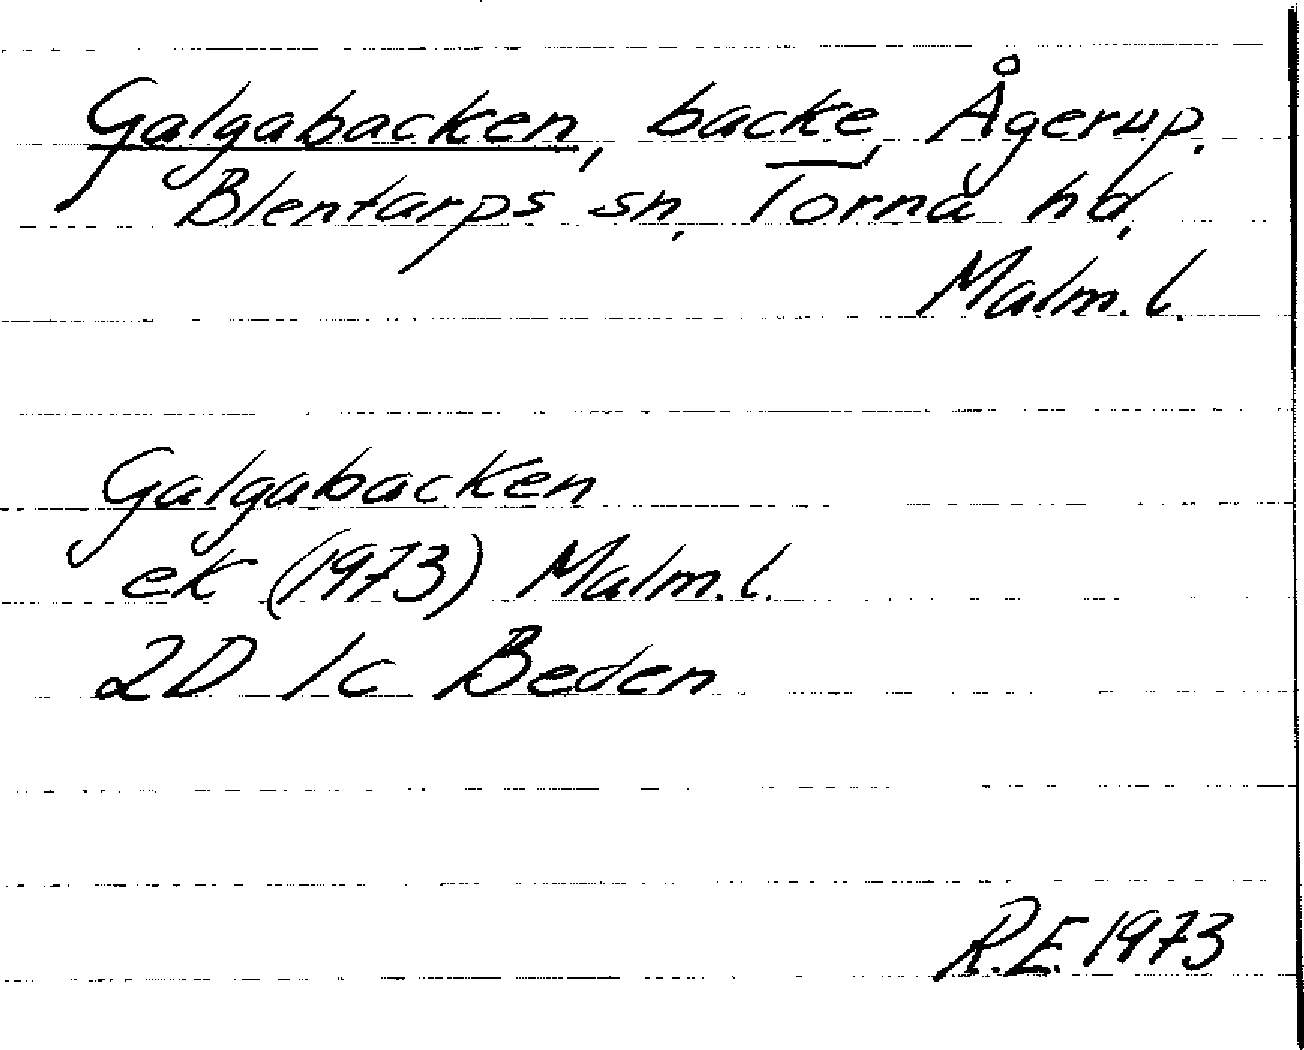 Galgabacken, backe, Ågerup.
Blentarps sn, Torna hd,
Malm. l.
Galgabacken
ek (1973) Malm. l.
2D 1c Beden
R.E. 1973